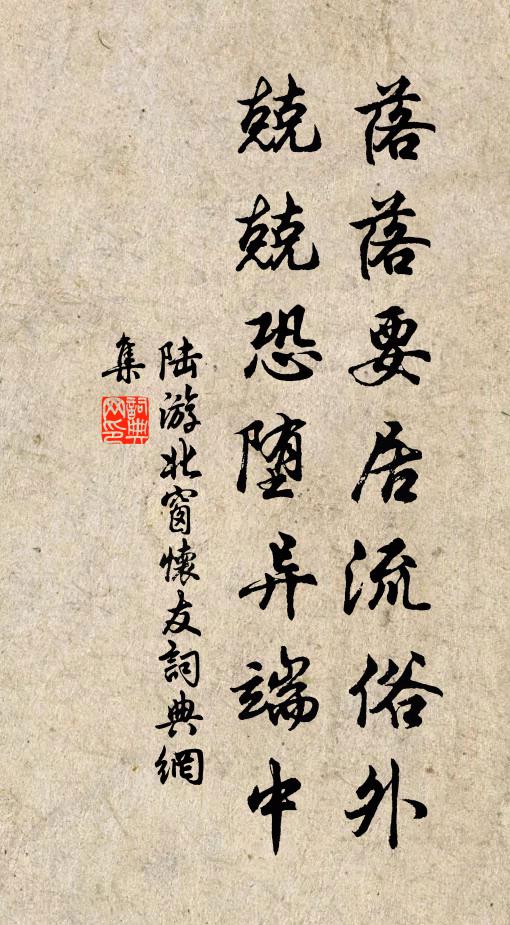 落落要居流俗外
兢兢恐堕异端中
陆游北窗懷友詞典網
集
詞典
网印